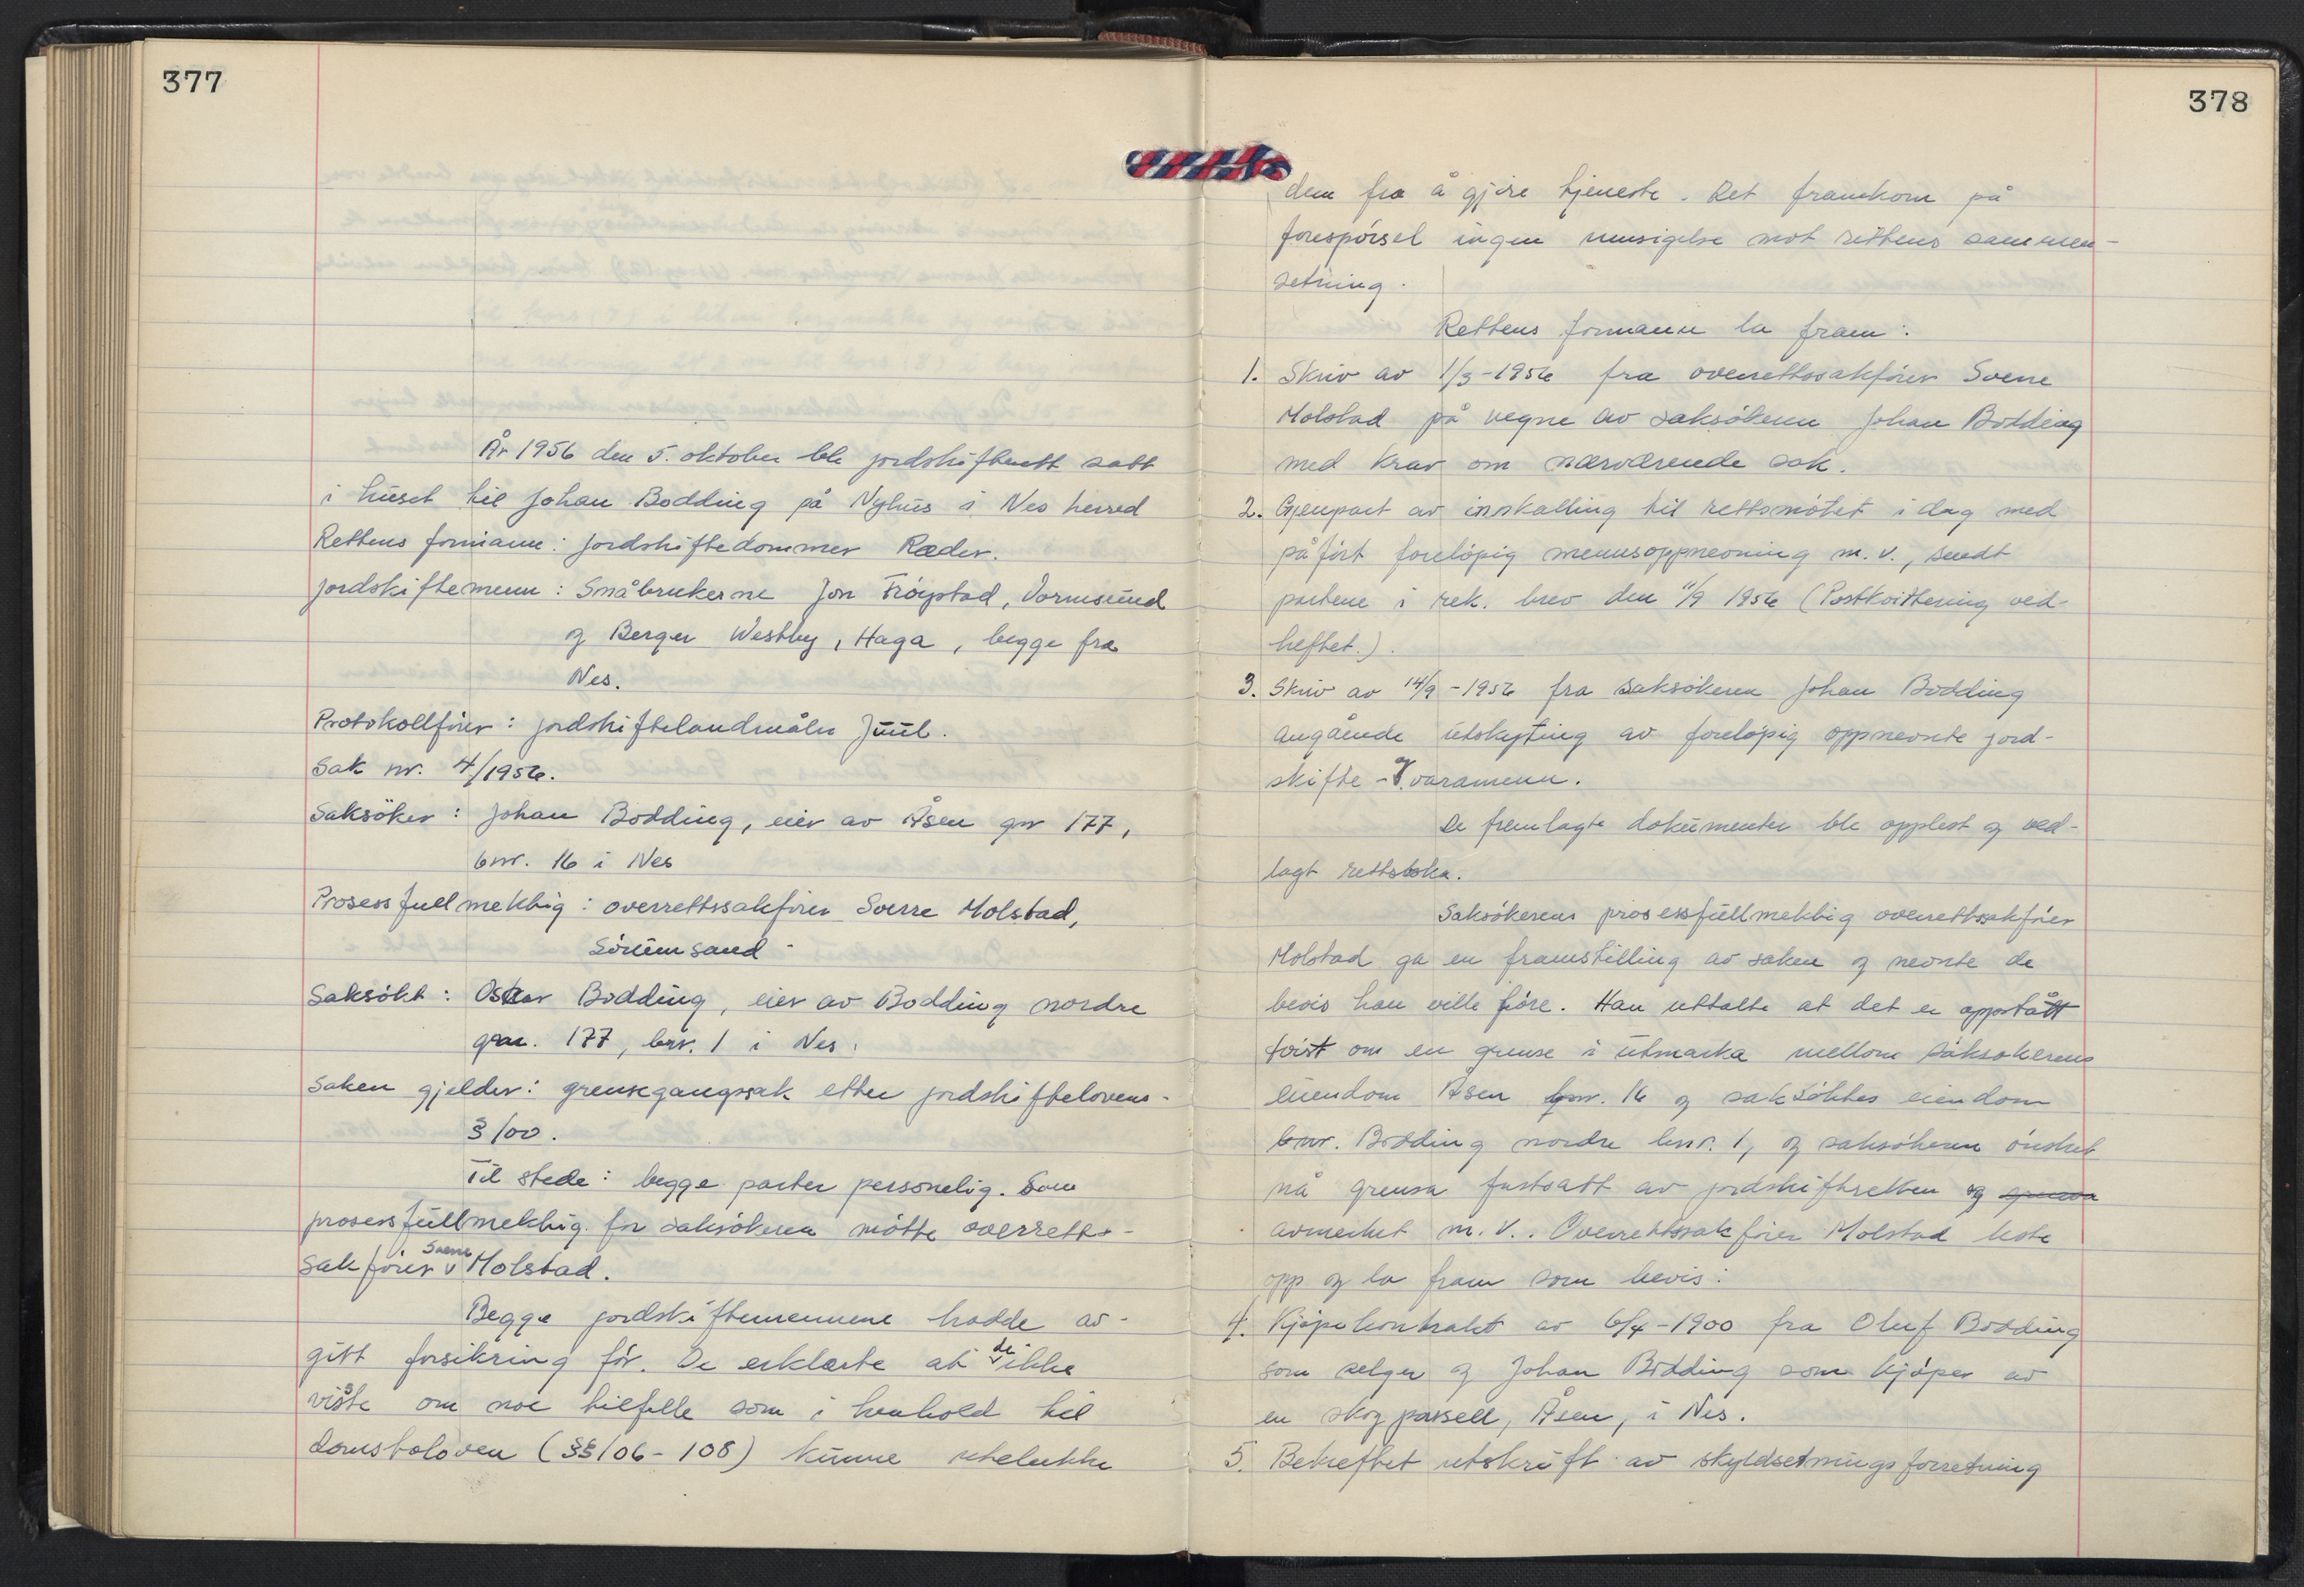 377
År 1956 den 5. oktober ble jordskifterett satt
i huset til Johan Bodding på Nyhus i Nes herred
Rettens formann: jordskiftedommer Ræder.
Jordskiftemenn: Småbrukerne Jon Frøystad, Vormsund
og Berger Westby, Haga, begge fra
Nes.
Protokollfører: jordskiftelandmåler Juul.
Sak nr. 4/1956.
Saksöker: Johan Bodding, eier av Åsen gnr 177,
bnr. 16 i Nes
Prosessfullmektig: overrettssakfører Sverre Molstad,
Sörumsand
Saksökt: Oskar Bodding, eier av Bodding nordre
gnr. 177, bnr. 1 i Nes.
Saken gjelder: grensegangssak etter jordskiftelovens
§ 100.
Til stede: begge parter personelig. Som
prosessfullmektig for saksökeren mötte overretts-
sakförer Sverre Molstad.
Begge jordskiftemennene hadde av-
gitt forsikring för. De erklærte at de ikke
visste om noe tilfelle som i henhold til
domstoloven (§§ 106-108) kunne utelukke
378
dem fra å gjöre tjeneste. Det framkom på
forespörsel ingen innsigelse mot rettens sammen-
setning.
Rettens formann la fram:
1. Skriv av 1/3-1956 fra overrettssakförer Sverre
Molstad på vegne av saksökeren Johan Bodding
med krav om nærværende sak.
2. Gjenpart av innkalling til rettsmötet i dag med
påfört foreløpig mennsoppnevning m.v., sendt
partene i rek. brev den 11/9 1956 (Postkvittering ved-
heftet.).
3. Skriv av 14/9-1956 fra saksökeren Johan Bodding
angående utskyting av foreløpig oppnevnte jord-
skifte- og varamenn.
De fremlagte dokumenter ble opplest og ved-
lagt rettsboka.
Saksökerens prosessfullmektig overrettssakförer
Molstad ga en framstilling av saken og nevnte de
bevis han ville före. Han uttalte at det er oppstått
tvist om en grense i utmarka mellom saksökerens
eiendom Åsen bnr. 16 og saksöktes eiendom
bnr. Bodding nordre bnr. 1, og saksökeren önsket
nå grensa fastsatt av jordskifteretten og grensa
avmerket m.v.. Overrettssakförer Molstad leste
opp og la fram som bevis:
4. Kjöpekontrakt av 6/4-1900 fra Oluf Bodding
som selger og Johan Bodding som kjöper av
en skogparsell, Åsen, i Nes.
5. Bekreftet utskrift av skyldsetningsforretning